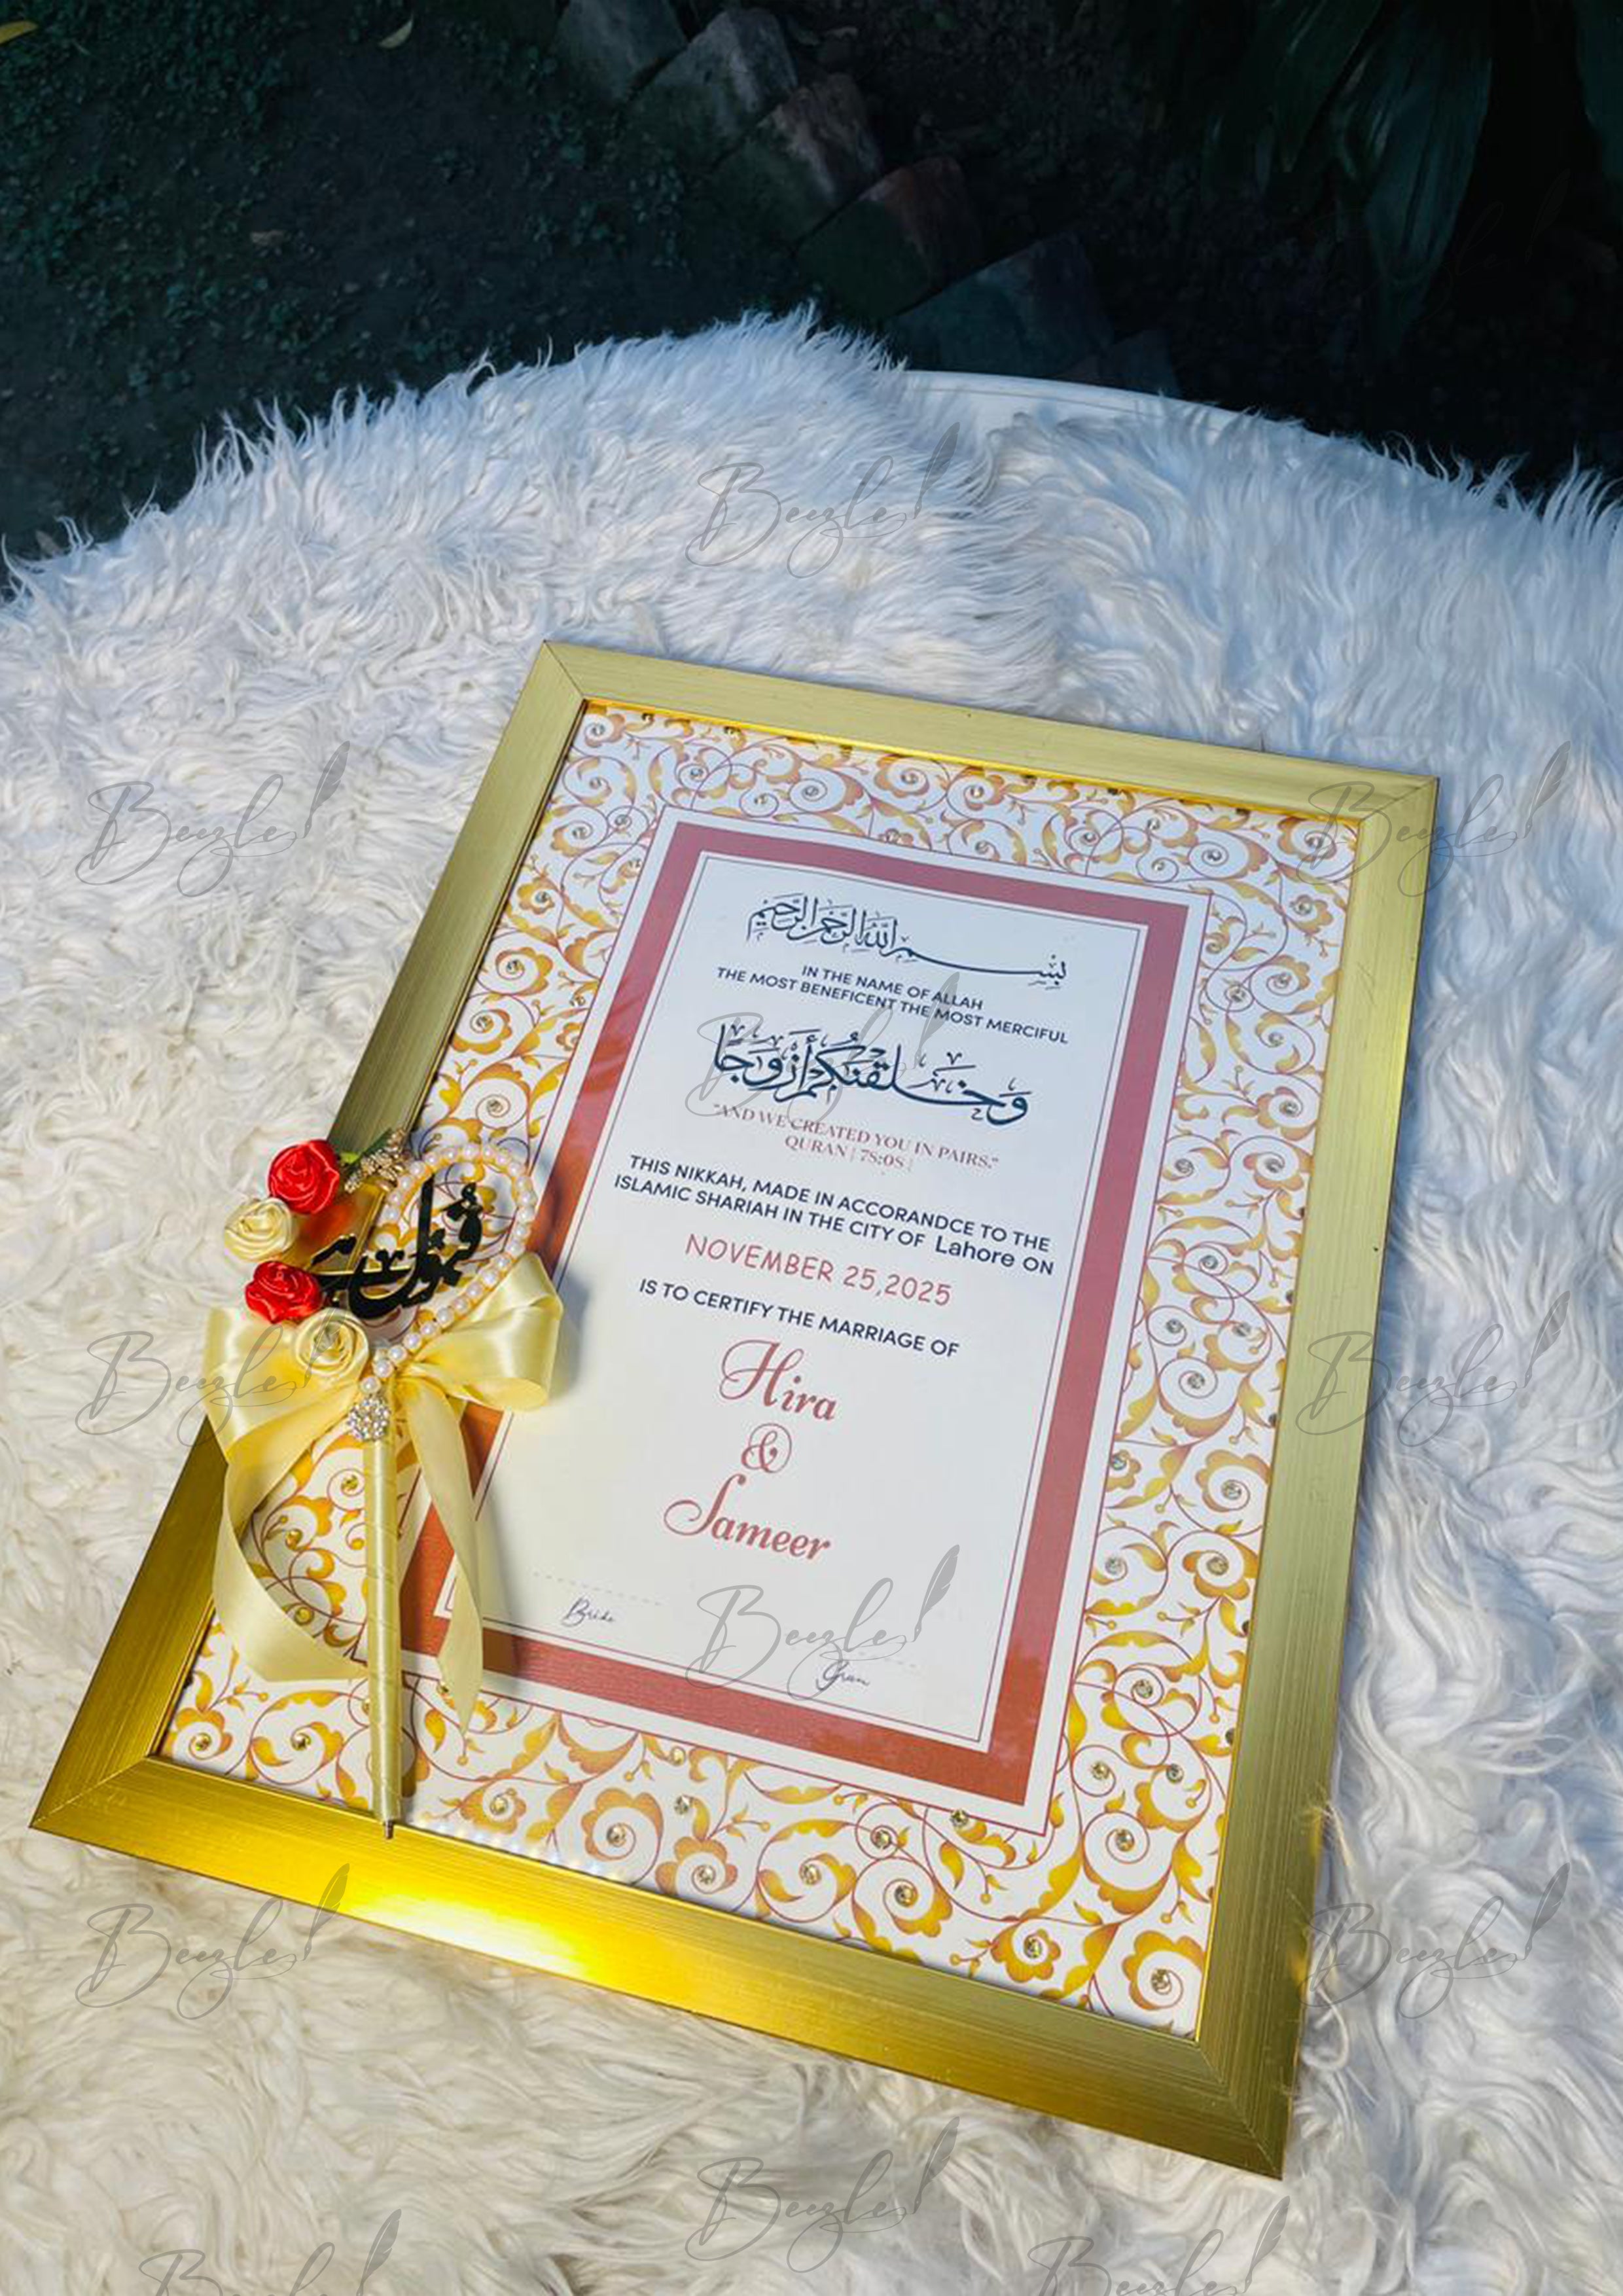 بِسْمِ اللهِ الرَّحْمٰنِ الرَّحِيْمِ
IN THE NAME OF ALLAH
THE MOST BENEFICENT THE MOST MERCIFUL
وَخَلَقْنَكُمْ أَزْوَجًا
"AND WE CREATED YOU IN PAIRS."
QURAN | 78:08 |
THIS NIKKAH, MADE IN ACCORANDCE TO THE
ISLAMIC SHARIAH IN THE CITY OF Lahore ON
NOVEMBER 25,2025
IS TO CERTIFY THE MARRIAGE OF
Hira
&
Sameer
Bride
قبول ہے
Beezle
Beezle
Beezle
Beezle
Beezle
Beezle
Beezle
Beezle
Beezle
Beezle
Beezle
Beezle